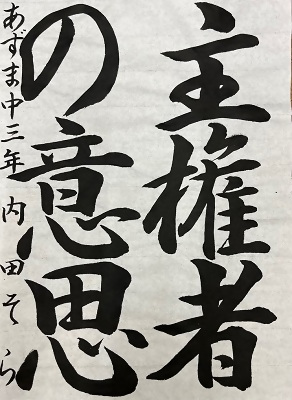 主権者
の意思
あずま中三年 内田そら